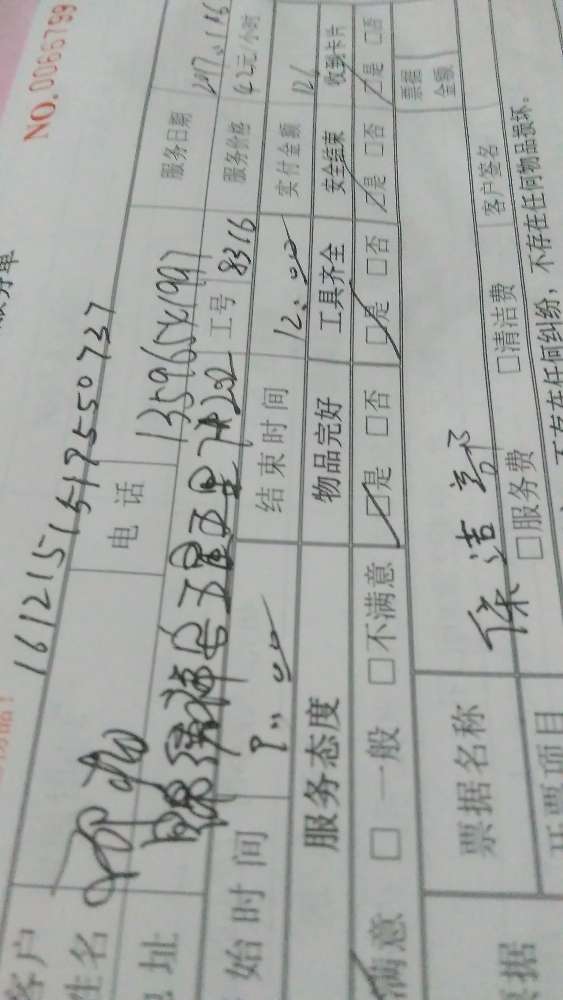 NO.0066799
1612151517550737
客户姓名
电话 13596541997
服务日期 2017.1.16
地址
工号 8316
服务价格 42元/小时
始时间 9:00
结束时间 12:00
实付金额 126
服务态度
物品完好
工具齐全
安全结束
收到卡片
满意 □一般 □不满意
☑是 □否
☑是 □否
☑是 □否
☑是 □否
票据名称 保洁部
票据金额
票据
开票项目
□服务费 □清洁费
客户签名
不存在任何纠纷，不存在任何物品损坏。